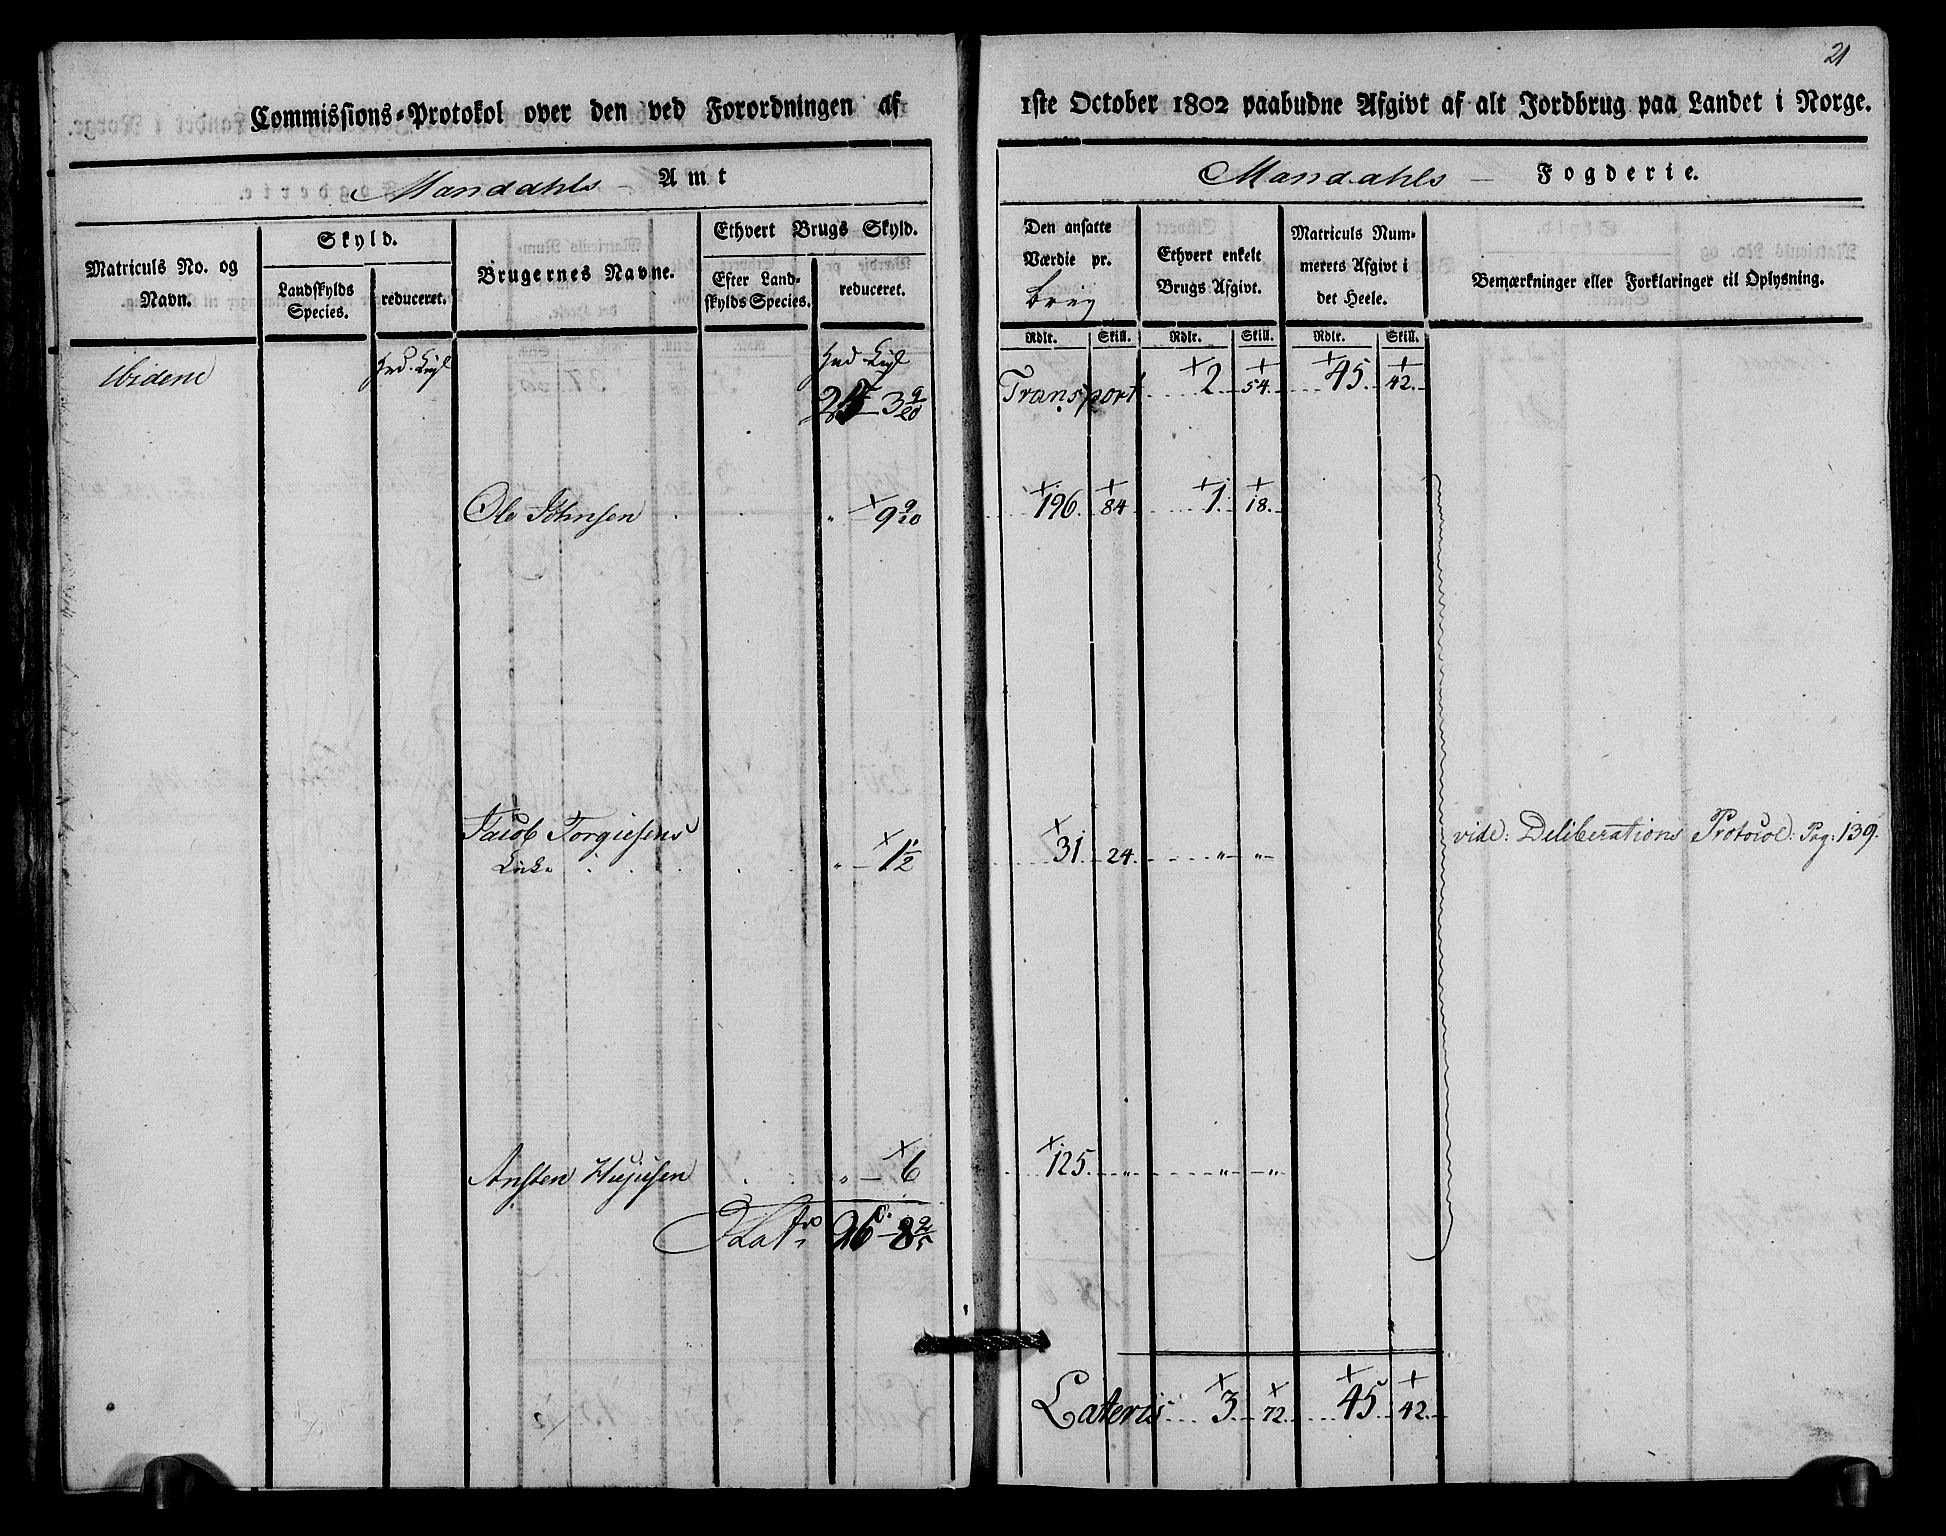 21
Commissions-Protokol over den ved Forordningen af 1ste October 1802 paabudne Afgivt af alt Jordbrug paa Landet i Norge.
Mandahls - Amt
Mandahls - Fogderie.
Matriculs No. og Navn.
Skyld.
Landskylds Species.
reduceret.
Brugernes Navne.
Ethvert Brugs Skyld.
Efter Landskylds Species.
reduceret.
Den ansatte Værdie pr. brug
Ethvert enkelt Brugs Afgivt.
Matriculs Nummerets Afgivt i det Heele.
Bemærkninger eller Forklaringer til Oplysning.
Rdlr. Skill. Rdlr. Skill. Rdlr. Skill.
Ibidem
Transport 2 54. 45. 42.
25 3 9/20
Ole Johnsen " 9 9/20 196. 84 1. 18.
Jacob Torgiesens
Enke " 1 1/2 31 24 " " vide: Deliberations Protocol: Pag: 139.
Ansten " 6 125. " " "
Latr 26 8 2/5
Lateris 3 72. 45 42.